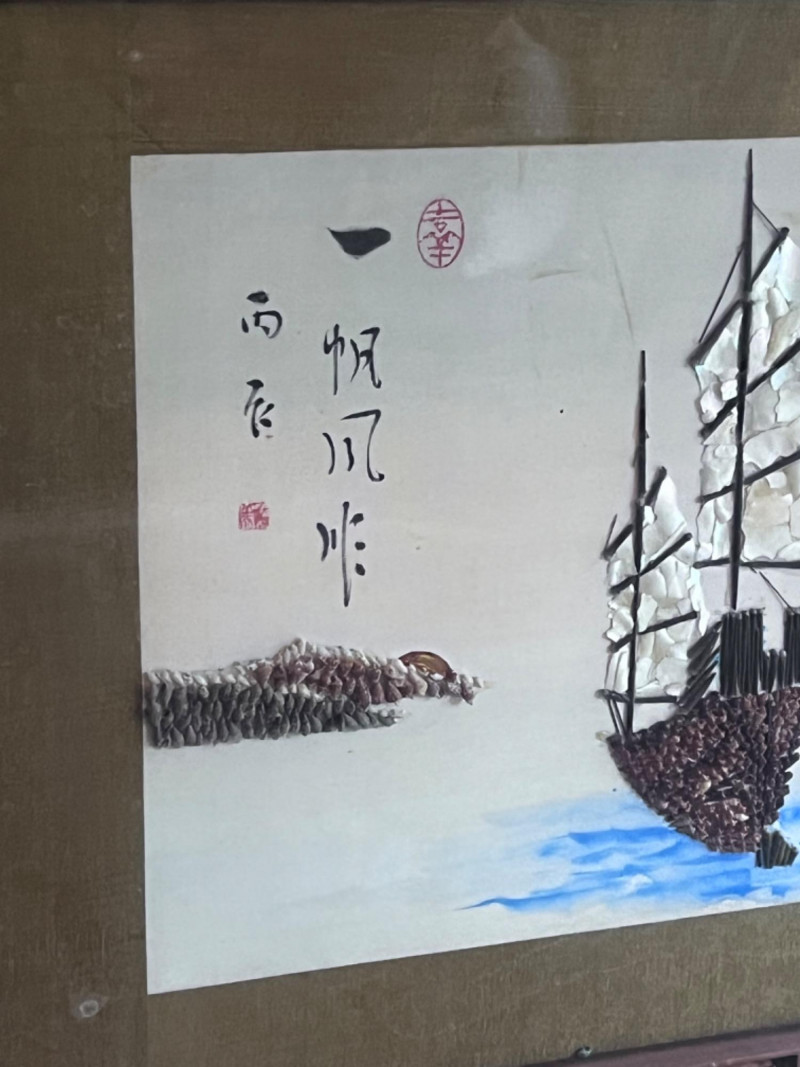 一帆风顺
丙辰